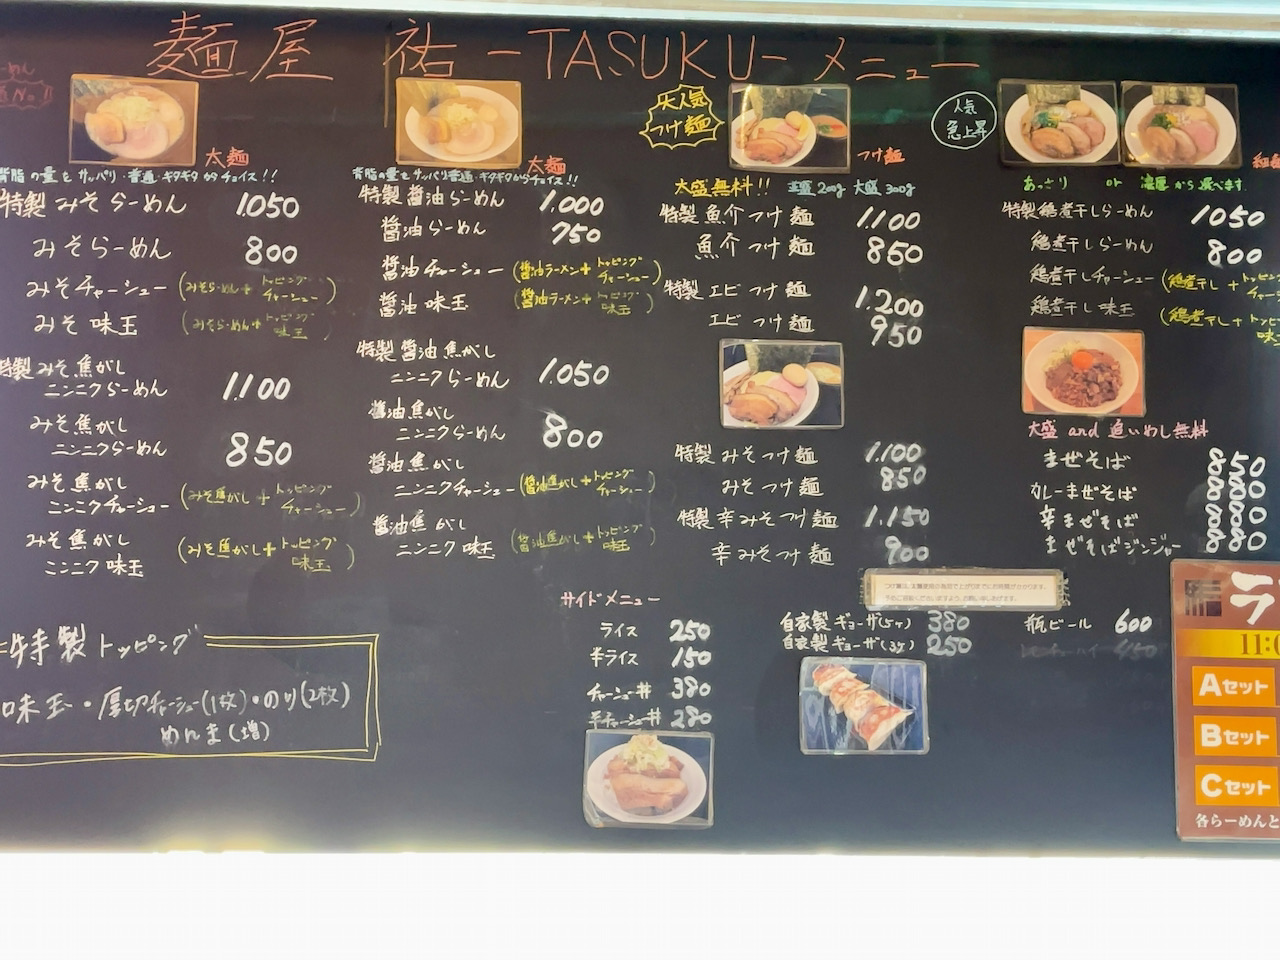 麺屋 祐 -TASUKU- メニュー
太麺
背脂の量をサッパリ・普通・ギタギタからチョイス!!
特製みそらーめん 1050
みそらーめん 800
みそチャーシュー (みそらーめん+トッピングチャーシュー)
みそ味玉 (みそらーめん+トッピング味玉)
特製みそ焦がし
ニンニクらーめん 1100
みそ焦がし
ニンニクらーめん 850
みそ焦がし
ニンニクチャーシュー (みそ焦がし+トッピングチャーシュー)
みそ焦がし
ニンニク味玉 (みそ焦がし+トッピング味玉)
特製トッピング
味玉・厚切チャーシュー(1枚)・のり(2枚)
めんま(増)
太麺
背脂の量をサッパリ・普通・ギタギタからチョイス!!
特製醤油らーめん 1,000
醤油らーめん 750
醤油チャーシュー (醤油ラーメン+トッピングチャーシュー)
醤油味玉 (醤油ラーメン+トッピング味玉)
特製醤油焦がし
ニンニクらーめん 1,050
醤油焦がし
ニンニクらーめん 800
醤油焦がし
ニンニクチャーシュー (醤油焦がし+トッピングチャーシュー)
醤油焦がし
ニンニク味玉 (醤油焦がし+トッピング味玉)
大人気
つけ麺
つけ麺
大盛無料!! 並盛200g 大盛300g
特製魚介つけ麺 1,100
魚介つけ麺 850
特製エビつけ麺 1,200
エビつけ麺 950
特製みそつけ麺 1,100
みそつけ麺 850
特製辛みそつけ麺 1,150
辛みそつけ麺 900
人気
急上昇
あっさり or 濃厚から選べます
特製鶏煮干しらーめん 1050
鶏煮干しらーめん 800
鶏煮干しチャーシュー (鶏煮干し+トッピ
鶏煮干し味玉 (鶏煮干し+トッピ
大盛 and 追いめし無料
まぜそば 850
カレーまぜそば 880
辛まぜそば 880
まぜそばジンジャー 880
サイドメニュー
ライス 250
半ライス 150
チャーシュー丼 380
半チャーシュー丼 280
自家製ギョーザ(5ヶ) 380
自家製ギョーザ(3ヶ) 250
瓶ビール 600
ラ
11:0
Aセット
Bセット
Cセット
各らーめんと